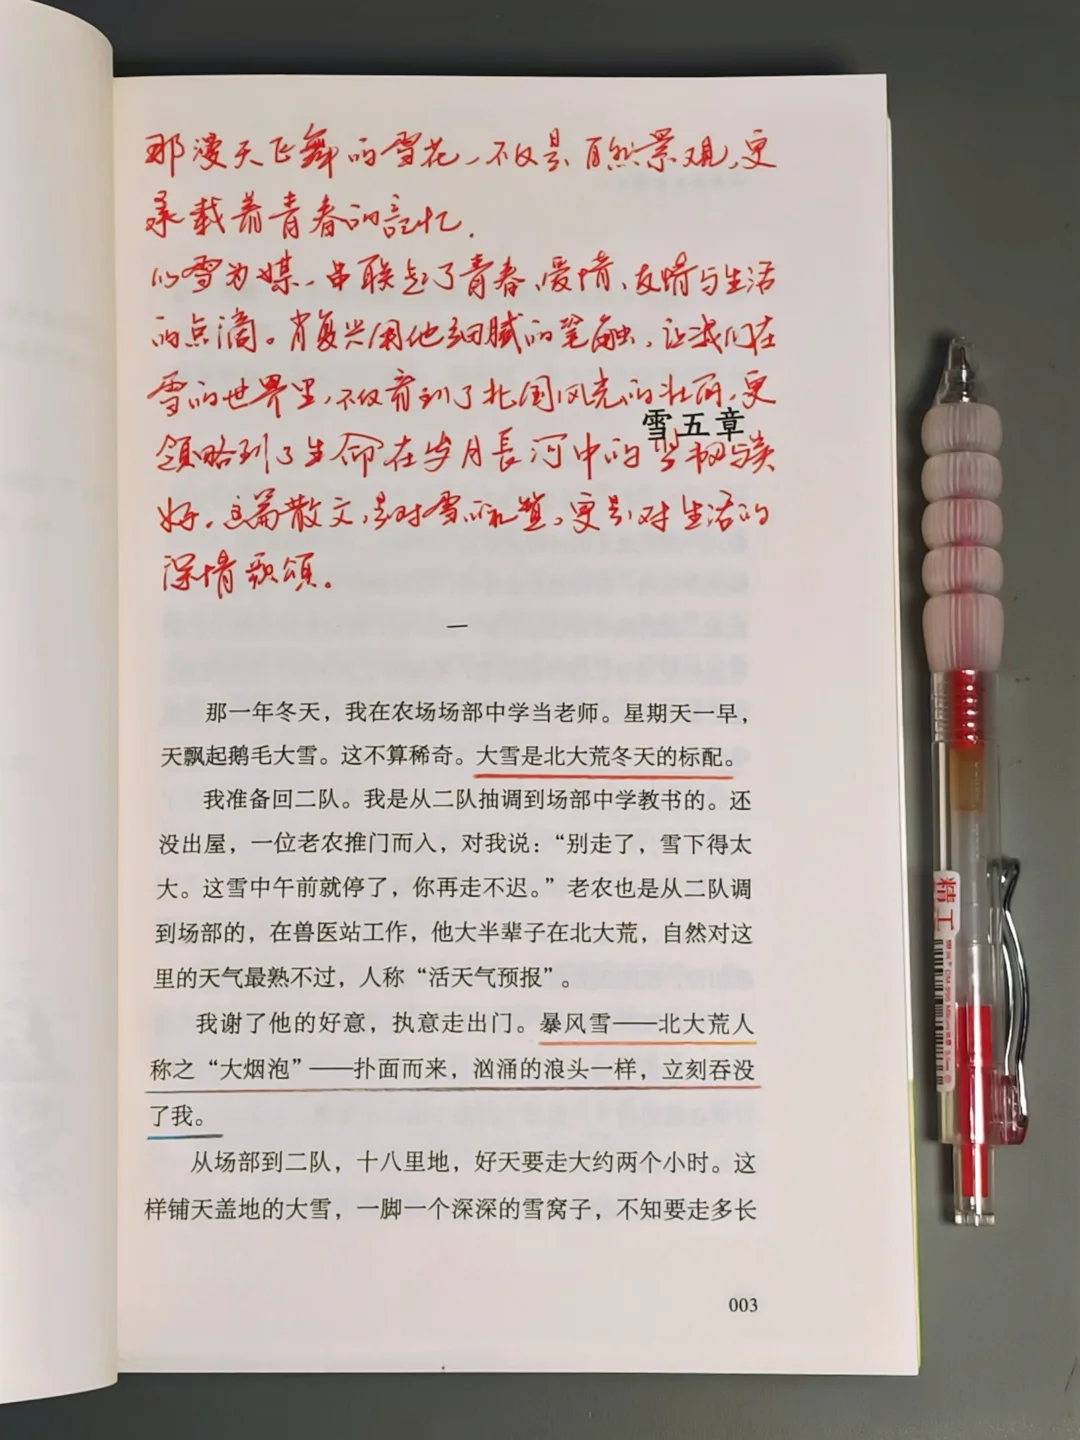 那漫天飞舞的雪花,不仅是自然景观,更
承载着青春的記忆.
以雪为媒,串联起了青春、爱情、友情与生活
的点滴。肖复兴用他细腻的笔触,让我们在
雪的世界里,不仅看到了北国风光的壮丽,更
雪五章
领略到了生命在岁月長河中的坚韧与美
好.这篇散文,是对雪的礼赞,更是对生活的
深情歌頌.
一
那一年冬天，我在农场场部中学当老师。星期天一早，
天飘起鹅毛大雪。这不算稀奇。大雪是北大荒冬天的标配。
我准备回二队。我是从二队抽调到场部中学教书的。还
没出屋，一位老农推门而入，对我说：“别走了，雪下得太
大。这雪中午前就停了，你再走不迟。”老农也是从二队调
到场部的，在兽医站工作，他大半辈子在北大荒，自然对这
里的天气最熟不过，人称“活天气预报”。
我谢了他的好意，执意走出门。暴风雪——北大荒人
称之“大烟泡”——扑面而来，汹涌的浪头一样，立刻吞没
了我。
从场部到二队，十八里地，好天要走大约两个小时。这
样铺天盖地的大雪，一脚一个深深的雪窝子，不知要走多长
003
精工